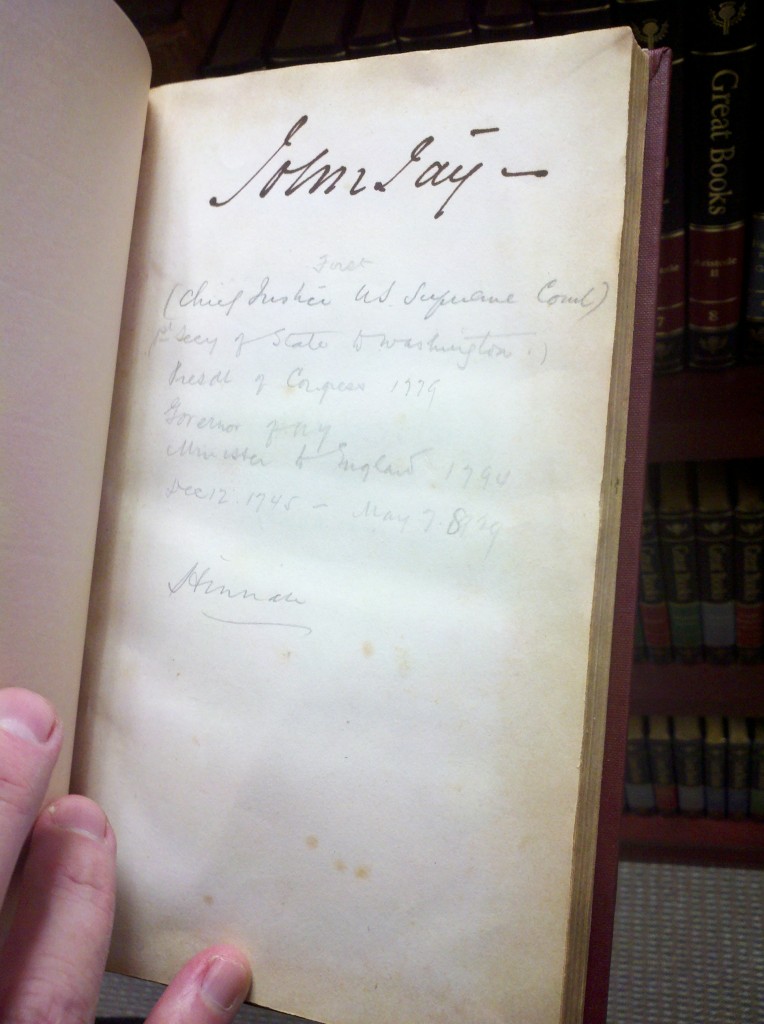 John Jay —
First
(Chief Justice U.S. Supreme Court)
Secy of State to Washington.)
Presdt of Congress 1779
Governor of NY
Minister to England 1794
Dec 12. 1745 – May 7. 1829
Great Books
Aristotle
II
7
8